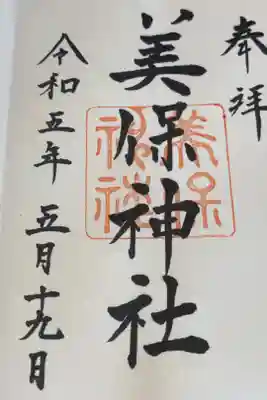 奉拝
美保神社
美保
神社
令和五年 五月十九日